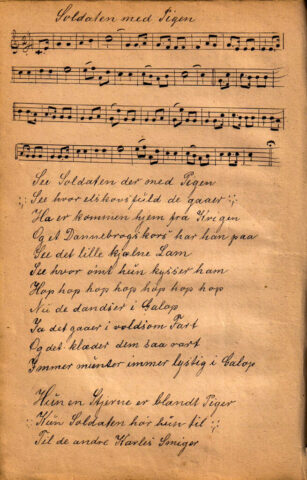 Soldaten med Pigen
See Soldaten der med Pigen
See hvor elskovsfuld de gaaer
Ha er kommen hjem fra Krigen
Og et Dannebrogskors har han paa
See det lille kjælne Lam
See hvor ömt hun kysser ham
Hop hop hop hop hop hop hop
Nu de dandser i Galop
Ja det gaaer i voldsom Fart
Og det klæder dem saa rart
Immer munter immer lystig i Galop
Hun en Stjerne er blandt Piger
Kun Soldaten hör hun til
Til de andre Karles Smiger